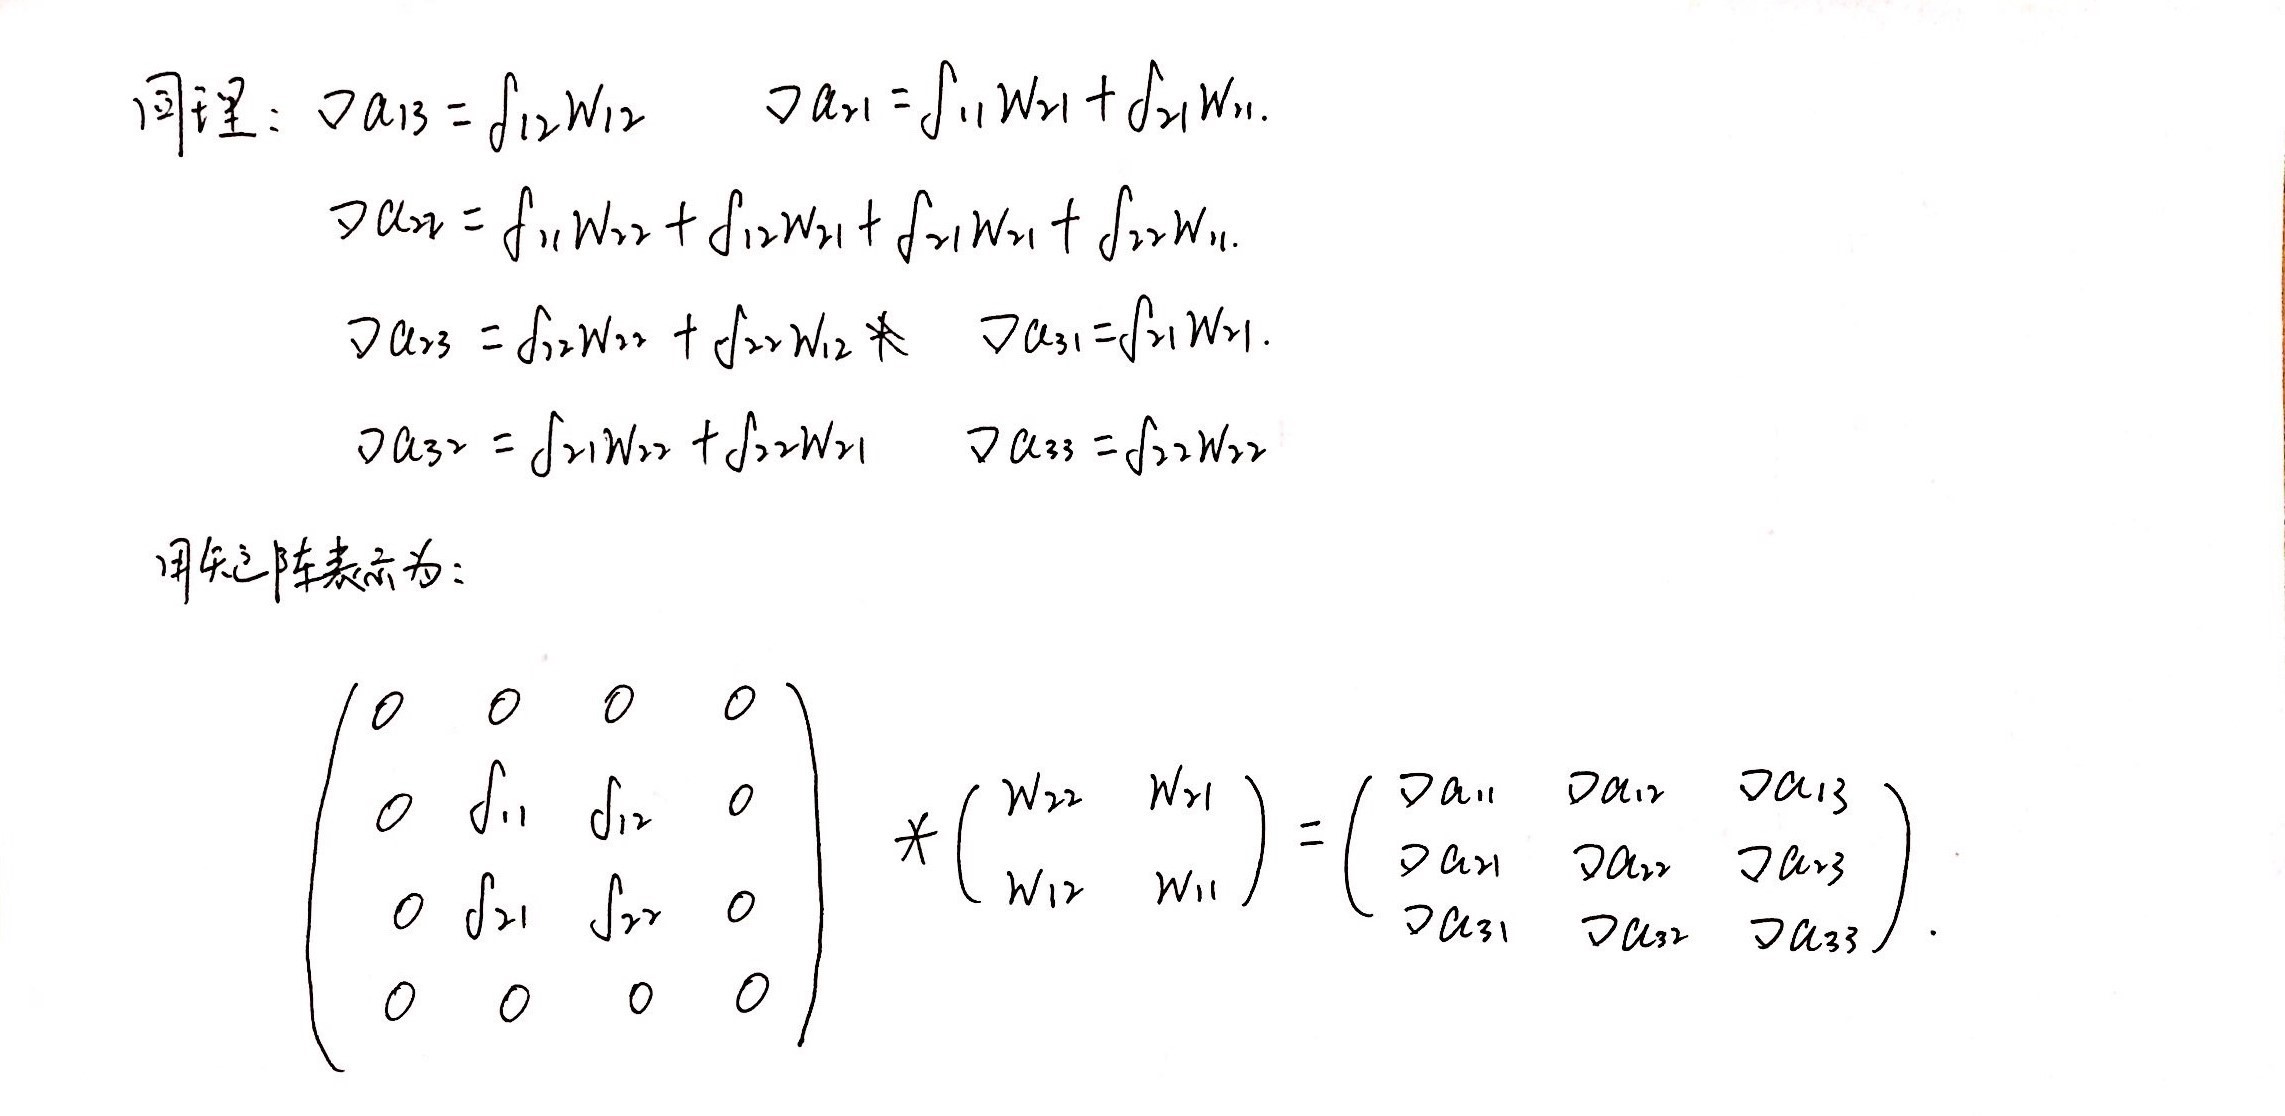 同理: ∇a₁₃ = δ₁₂W₁₂ ∇a₂₁ = δ₁₁W₂₁ + δ₂₁W₁₁.
∇a₂₂ = δ₁₁W₂₂ + δ₁₂W₂₁ + δ₂₁W₂₁ + δ₂₂W₁₁.
∇a₂₃ = δ₁₂W₂₂ + δ₂₂W₁₂ * ∇a₃₁ = δ₂₁W₂₁.
∇a₃₂ = δ₂₁W₂₂ + δ₂₂W₂₁ ∇a₃₃ = δ₂₂W₂₂
用矩阵表示为:
( 0 0 0 0
0 δ₁₁ δ₁₂ 0
0 δ₂₁ δ₂₂ 0
0 0 0 0 ) * ( W₂₂ W₂₁
W₁₂ W₁₁ ) = ( ∇a₁₁ ∇a₁₂ ∇a₁₃
∇a₂₁ ∇a₂₂ ∇a₂₃
∇a₃₁ ∇a₃₂ ∇a₃₃ ) .